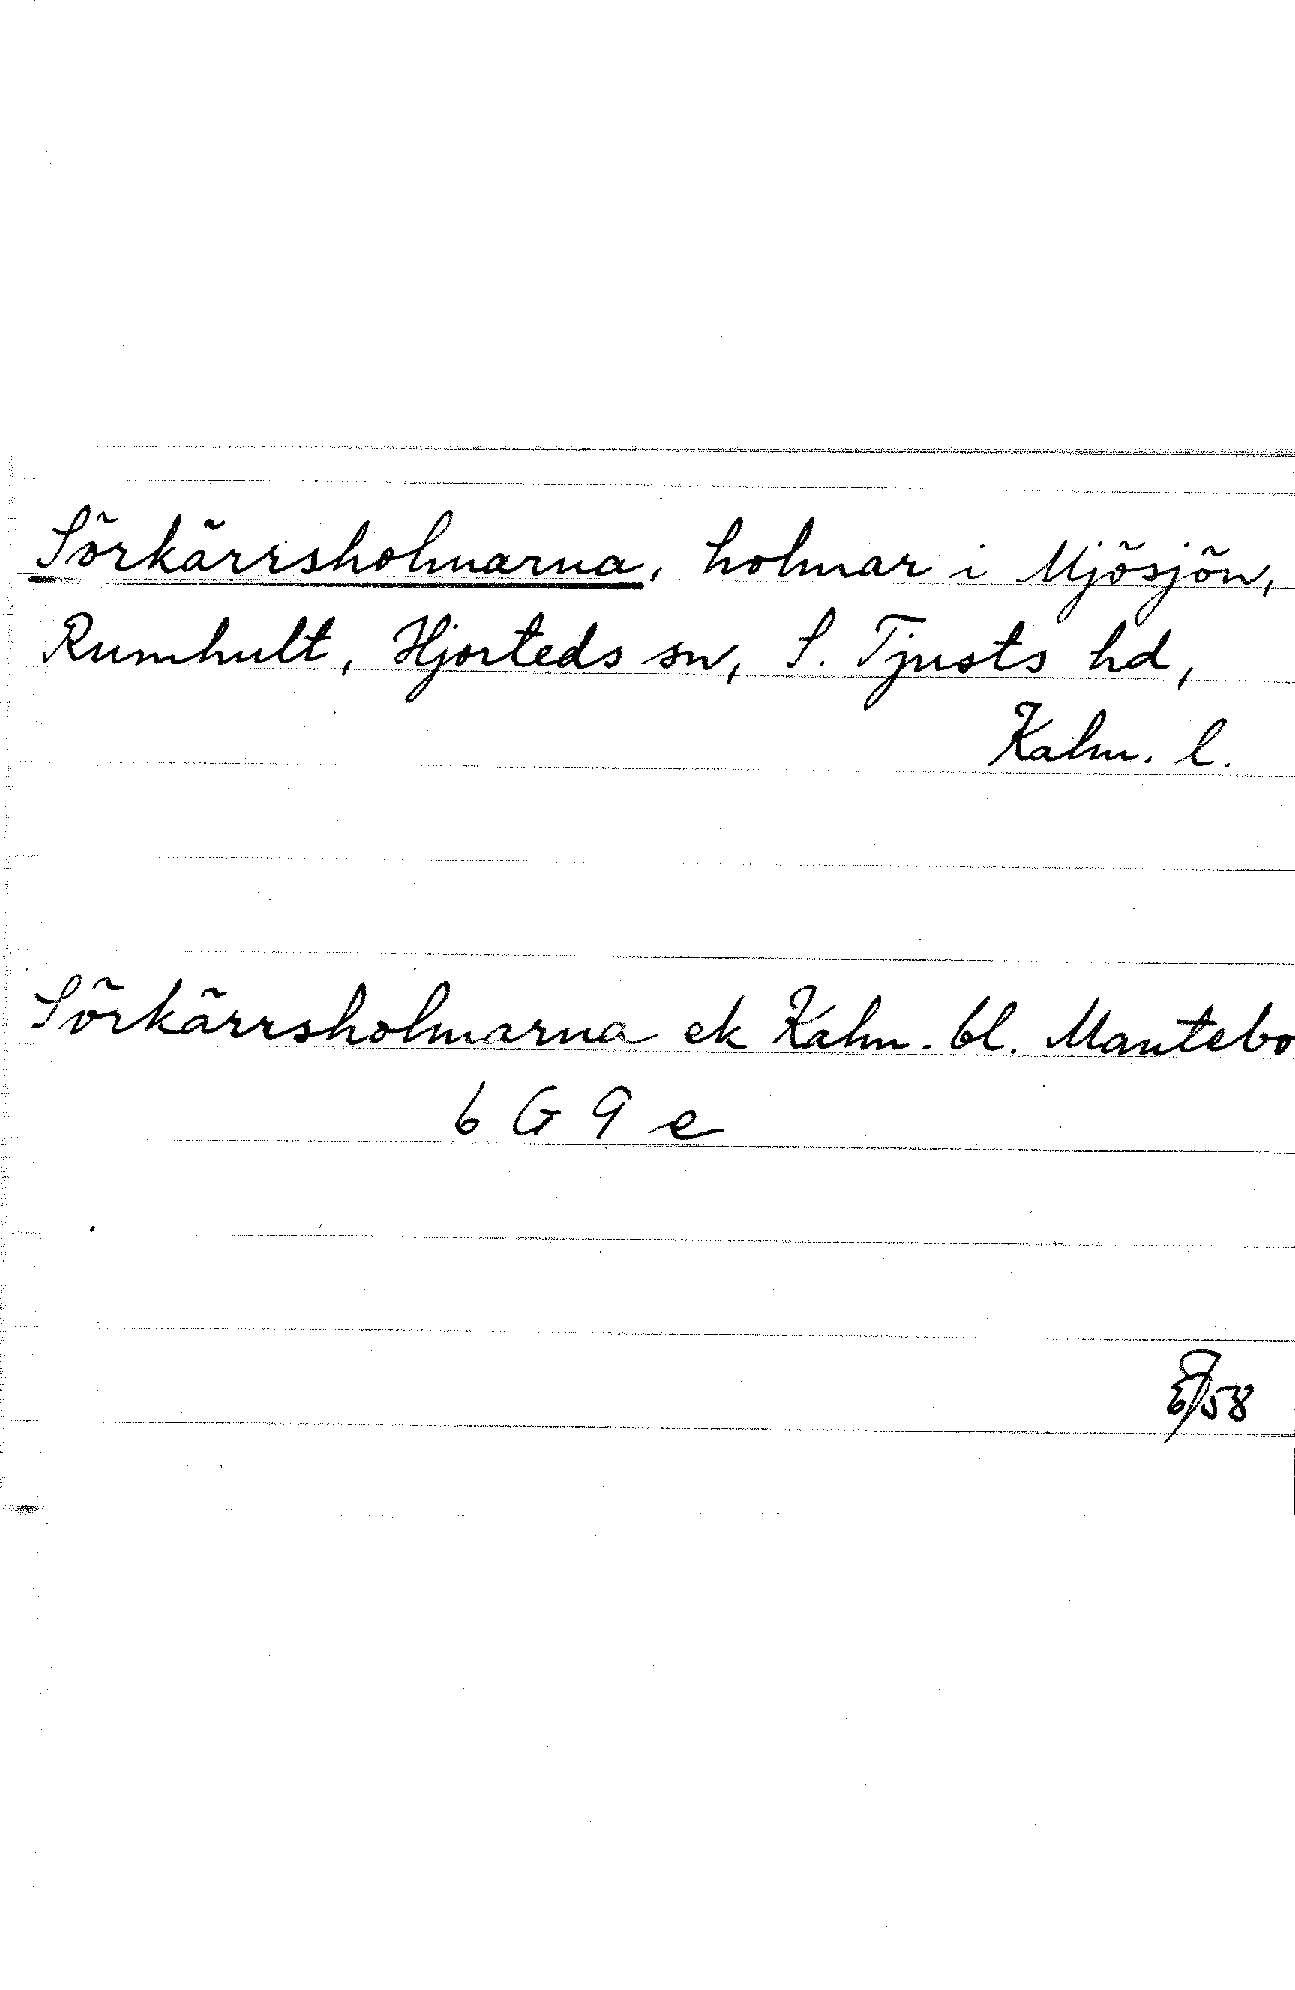 Sörkärrsholmarna, holmar i Mjösjön,
Rumhult, Hjorteds sn, S. Tjusts hd,
Kalm. l.
Sörkärrsholmarna ek Kalm. bl. Mantebo
6 G 9 e
58